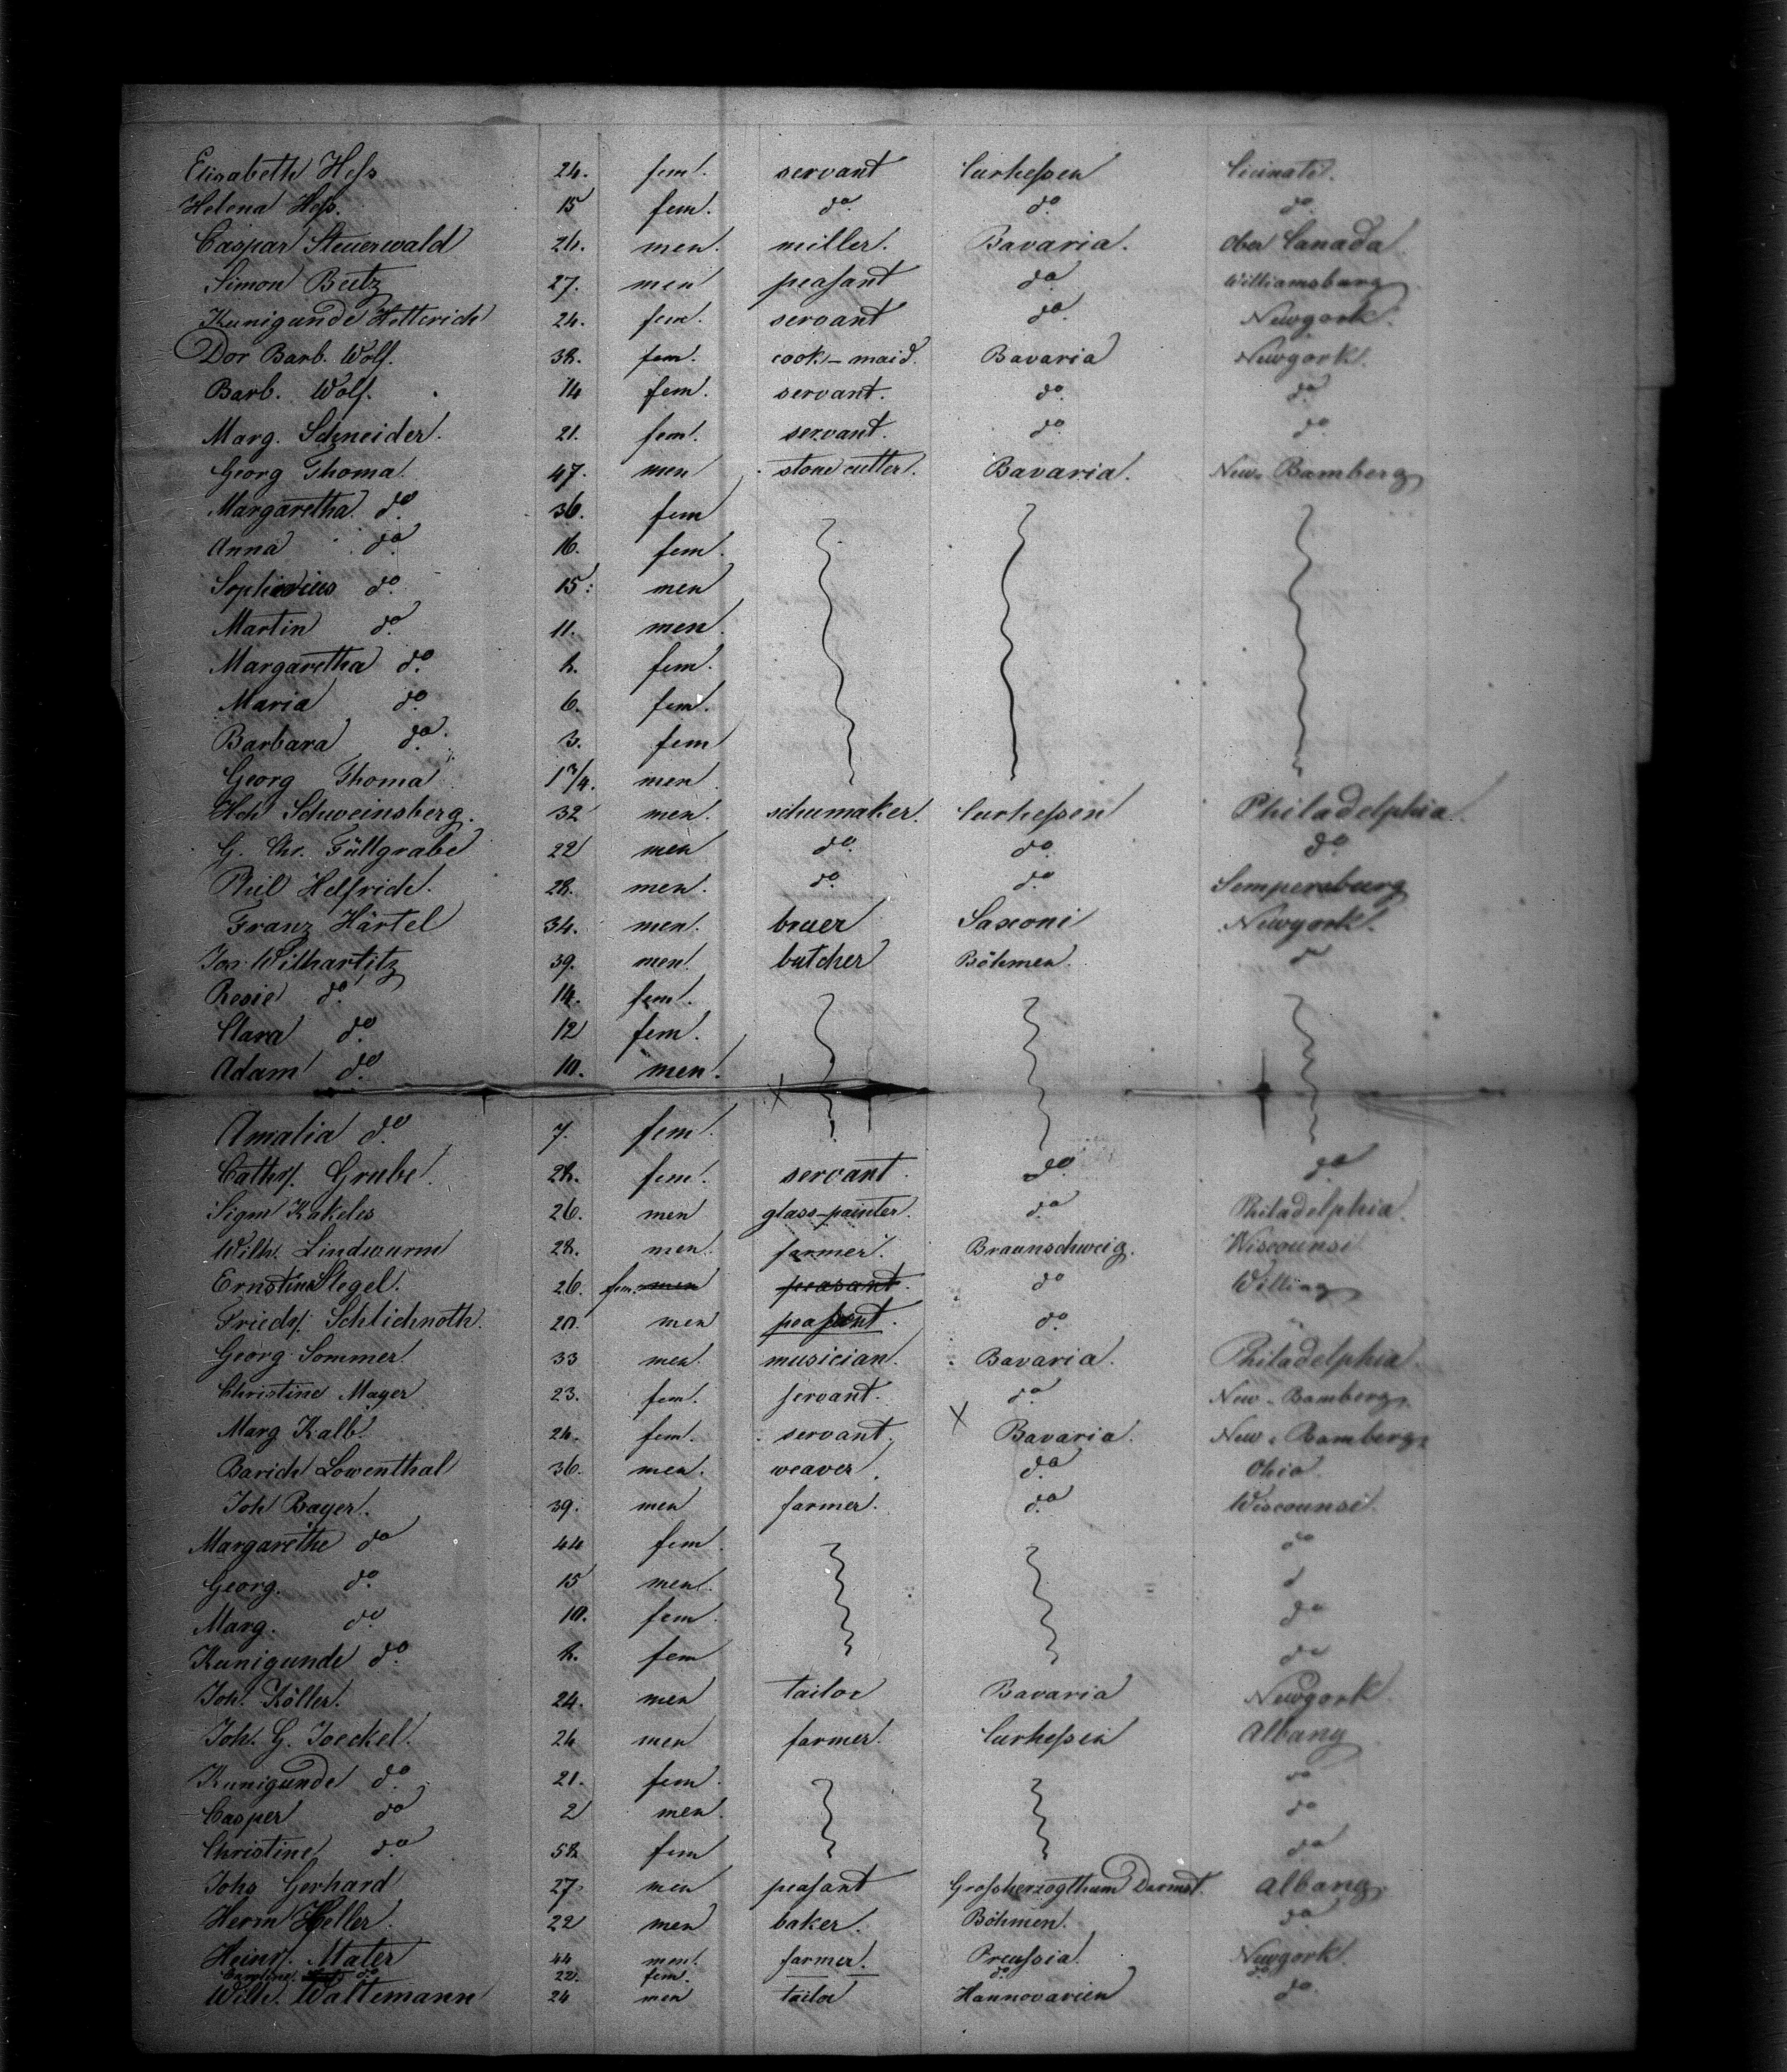 Elisabeth Hess 24. fem. servant Curhessen Cicinati.
Helena Hess. 15 fem. do. do. do.
Caspar Steuerwald 26. men. miller. Bavaria. Ober Canada
Simon Beetz 27. men peasant do. Williamsburg
Kunigunde Hetterich 24. fem. servant do. Newyork.
Dor Barb. Wolf. 38. fem. cook-maid. Bavaria Newyork.
Barb. Wolf. 14 fem. servant. do. do.
Marg. Schneider. 21. fem. servant. do. do.
Georg Thoma. 47. men stone cutter. Bavaria. New-Bamberg
Margaretha do. 36. fem
Anna do. 16. fem.
do. 15. men
Martin do. 11. men.
Margaretha do. 8. fem.
Maria do. 6. fem.
Barbara do. 3. fem
Georg Thoma 1 3/4. men
Hch Schweinsberg. 32 men. schumaker. Curhessen Philadelphia.
G. Chr. Füllgrabe 22 men do. do. do.
Phil Helfrich. 28. men. do. do. Sempersburg
Franz Härtel 34. men. bruer Saxoni Newyork.
Jos. Wilhartitz 39. men. butcher Böhmen. do
Rosie do. 14. fem.
Clara do. 12 fem.
Adam do. 10. men.
Amalia do. 7. fem.
Cath. Grube. 28. fem. servant. do. do
Sigm Kakeles 26. men glass-painter. do. Philadelphia.
Wilh. Lindwurm 28. men. farmer. Braunschweig. Wiscounsi
Ernstine Slegel. 26. fem. men peasant. do Willing
Friedr. Schlichnoth. 20. men peasant. do.
Georg Sommer. 33 men. musician. Bavaria. Philadelphia.
Christine Mayer 23. fem. servant. do. New-Bamberg.
Marg Kalb. 24. fem. servant. X Bavaria. New-Bamberg
Barich Lowenthal 36. men. weaver. do. Ohio.
Joh Bayer. 39. men farmer. do. Wiscounsi.
Margarethe do 44 fem. do
Georg. do. 15 men. do
Marg. do. 10. fem. do
Kunigunde do. 8. fem do
Joh. Köller. 24. men tailor Bavaria Newyork
Joh. G. Joeckel. 26 men farmer. Curhessen Albany
Kunigunde do. 21. fem. do
Casper do 2 men. do
Christine do 58 fem do
Johs Gerhard 27. men peasant Grossherzogthum Darmst. Albany
Herm Heller. 22 men baker. Böhmen. do
Heinr. Mater 44 men. farmer. Preussia. Newyork.
Caroline do 22. fem. do. do.
Wilh. Waltemann 24 men tailor Hannovarien do.